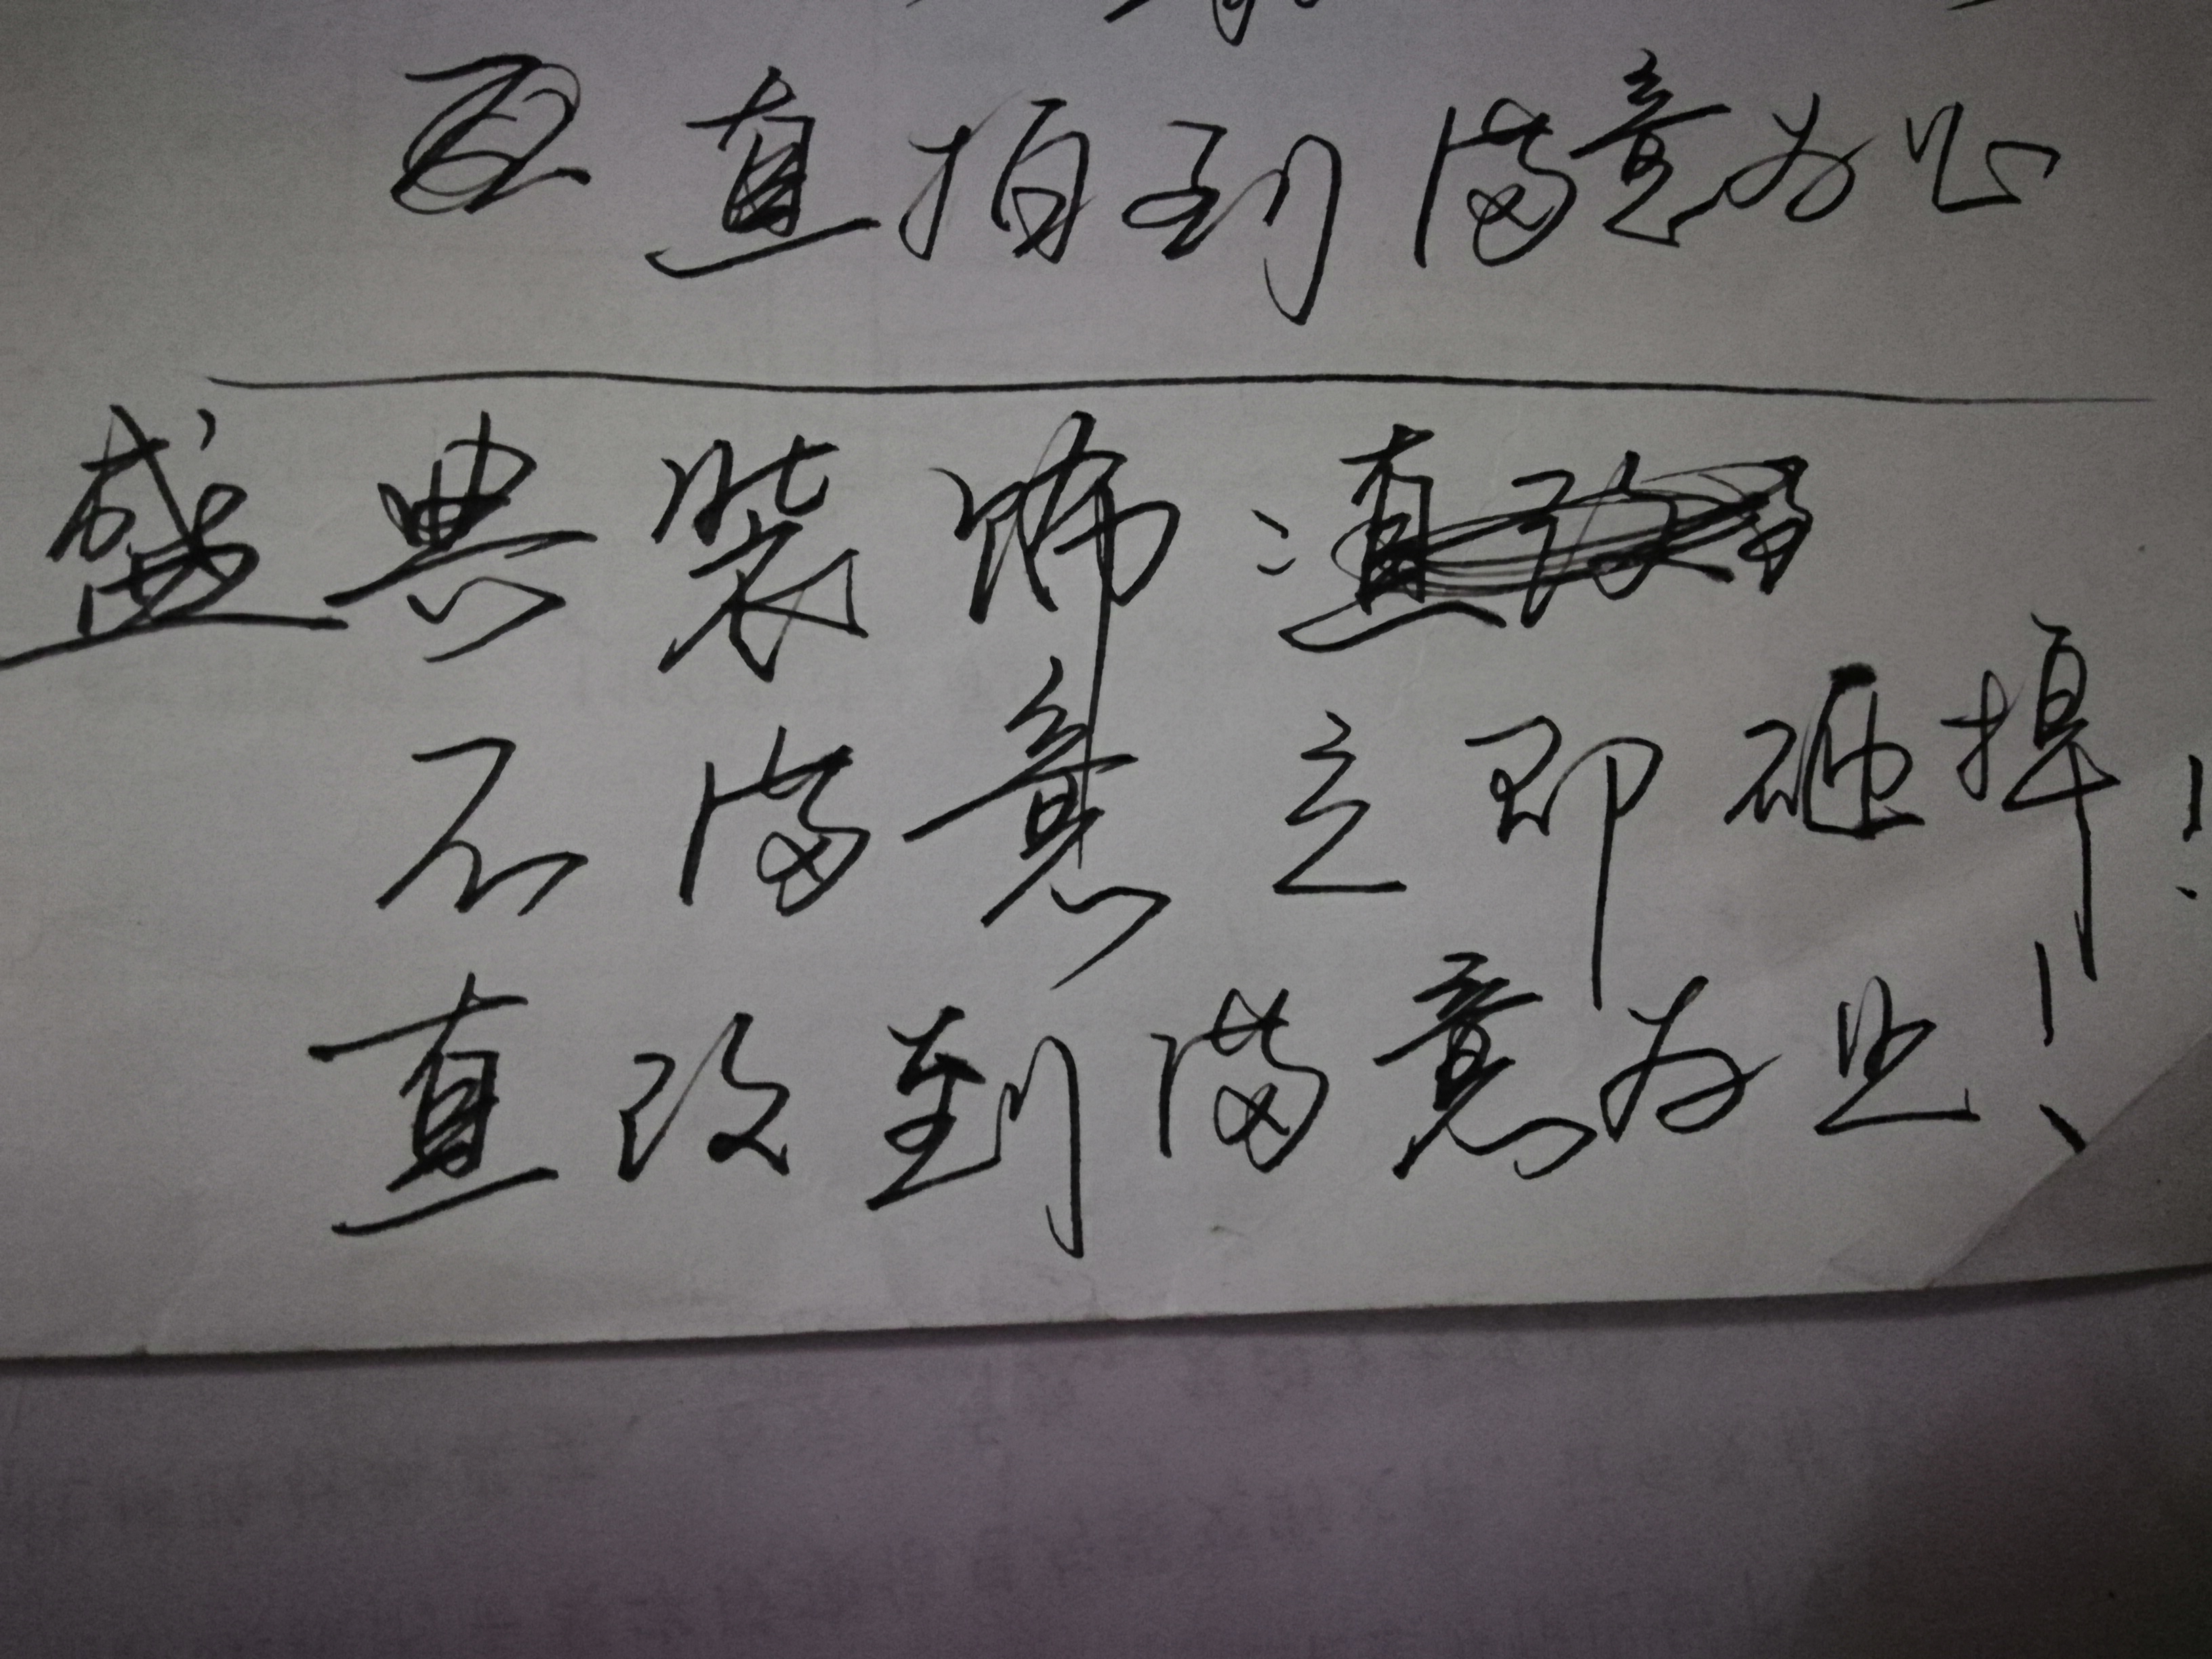 直拍到满意为止
盛典装饰：
不满意立即砸掉！
直改到满意为止！